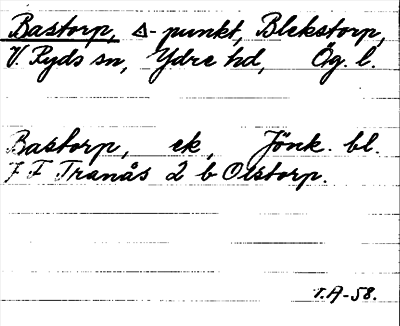 Bastorp, △-punkt, Blekstorp,
V. Ryds sn, Ydre hd, Ög. l.
Bastorp, ek, Jönk. bl.
7 F Tranås 2 b Olstorp.
T.A-58.